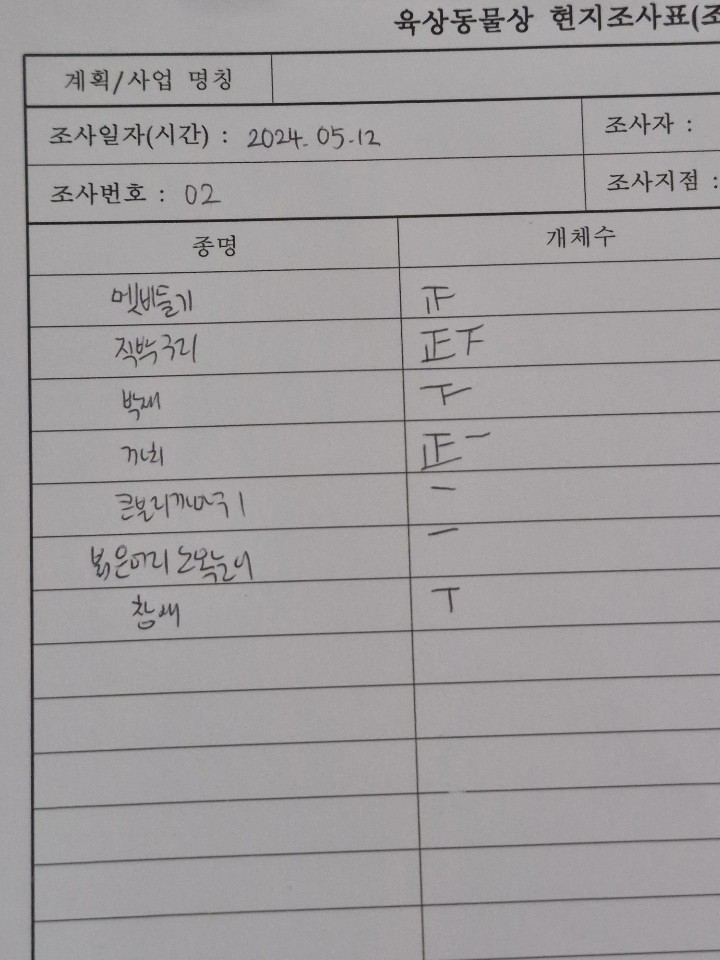 육상동물상 현지조사표(조
계획/사업 명칭
조사일자(시간) : 2024. 05.12 조사자 :
조사번호 : 02 조사지점 :
종명 개체수
멧비둘기 正
직박구리 正下
박새 下
까치 正一
큰부리까마귀 一
붉은머리오목눈이 一
참새 丅